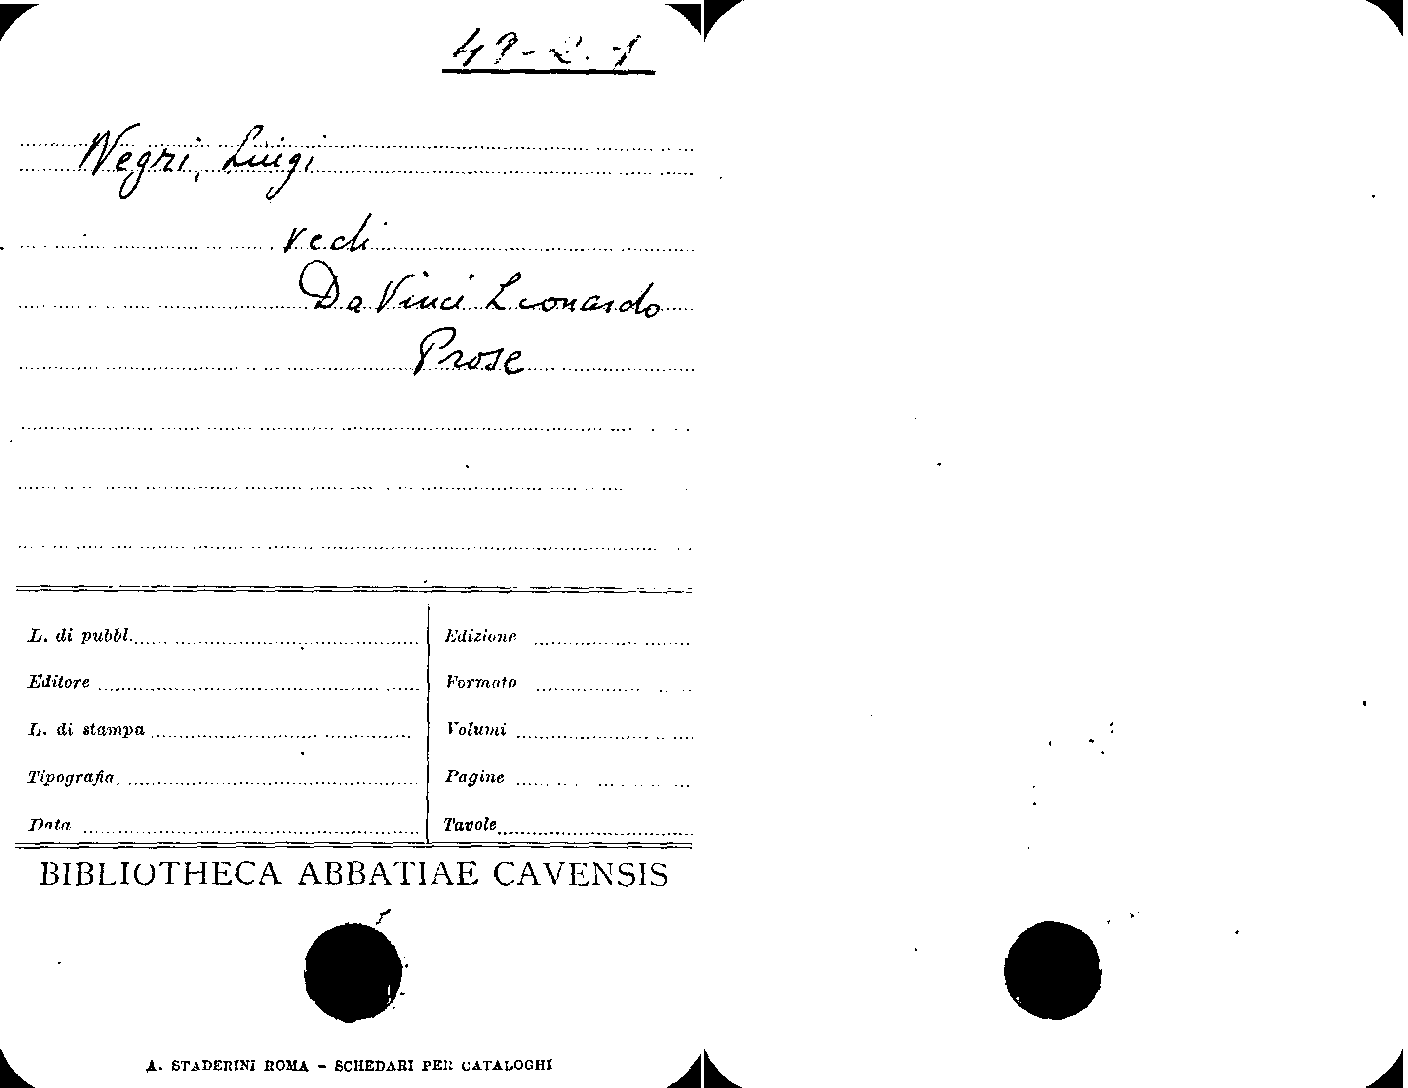 49-2.-1
Negri, Luigi
vedi
Da Vinci Leonardo
Prose
L. di pubbl.
Edizione
Editore
Formato
L. di stampa
Volumi
Tipografia
Pagine
Data
Tavole
BIBLIOTHECA ABBATIAE CAVENSIS
A. STADERINI ROMA - SCHEDARI PER CATALOGHI